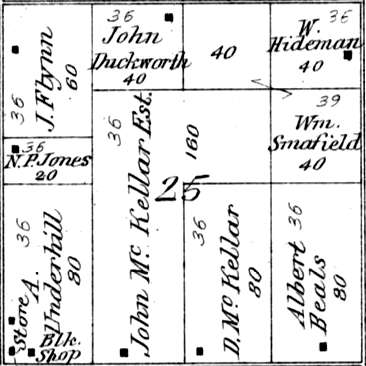 36
J. Flynn
60
36
John
Duckworth
40
40
36
W.
Hideman
40
36
N.P. Jones
20
36
John Mc Kellar Est.
160
39
Wm.
Smafield
40
25
36
A.
Underhill
80
Store
Blk.
Shop
36
D. Mc Kellar
80
36
Albert
Beals
80